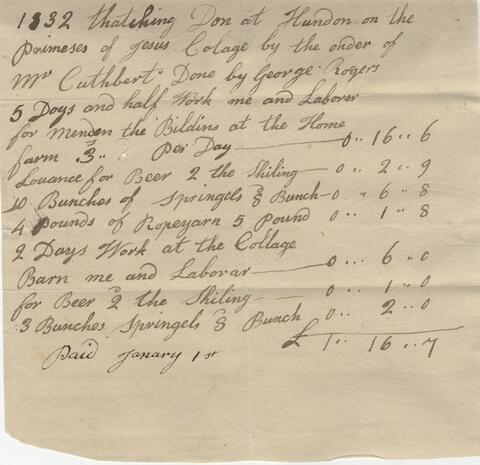 1832 thatching Don at Hundon on the
Primeses of Jesus Colage by the order of
Mr Cuthbert Done by George Rogers
5 Days and half Work me and Laborer
for Menden the Bildins at the Home
farm 3s Per Day — 0 .. 16 .. 6
Louance for Beer 2 the Shiling — 0 .. 2 .. 9
10 Bunches of Springels 8 Bunch - 0 .. 6 .. 8
4 Pounds of Ropeyarn 5 Pound 0 .. 1 .. 8
2 Days Work at the Collage
Barn me and Laborar — 0 .. 6 .. 0
for Beer 2 the Shiling — 0 .. 1 .. 0
3 Bunches Springels 8 Bunch 0 .. 2 .. 0
£ 1 .. 16 .. 7
Paid Janary 1st